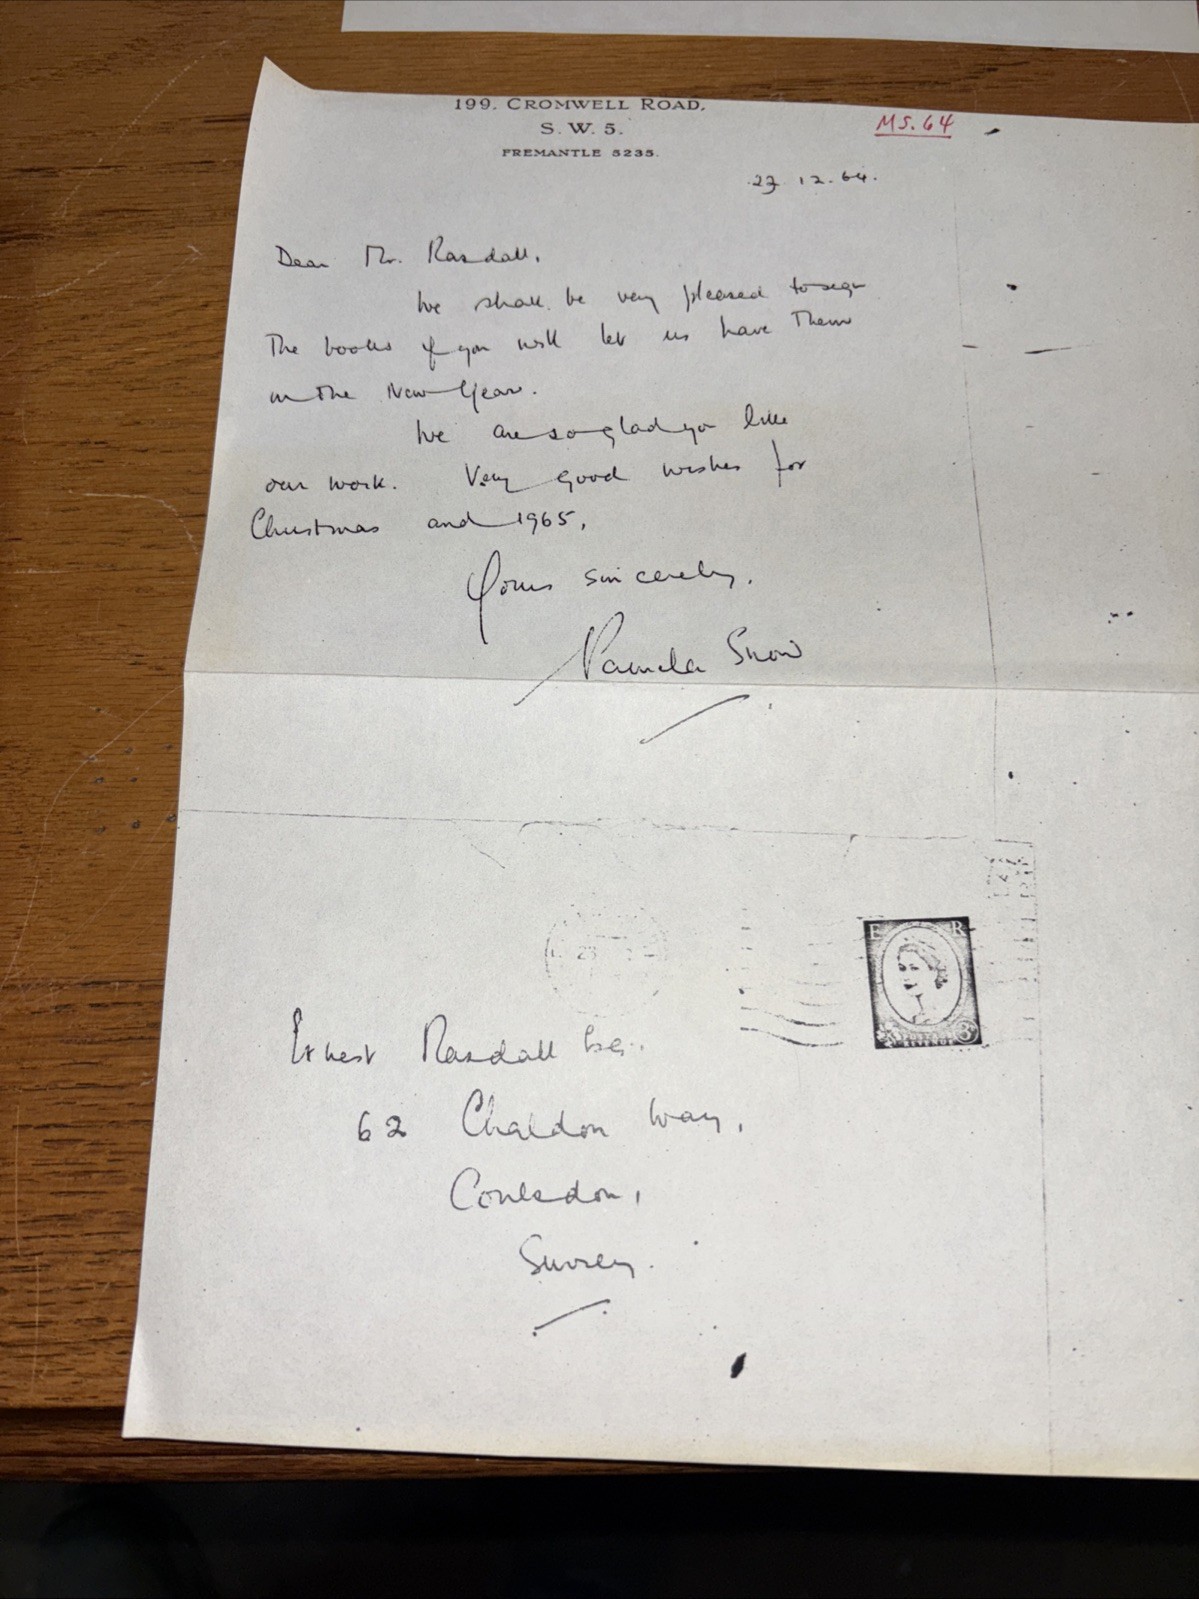 199. CROMWELL ROAD.
S. W. 5.
FREMANTLE 5235.
MS. 64
23 12. 64.
Dear Mr. Rasdall,
We shall be very pleased to sign
the books if you will let us have them
in the New Year.
We are so glad you like
our work. Very good wishes for
Christmas and 1965,
Yours sincerely,
Pamela Snow
23
E R
3
REVENUE
Ernest Rasdall Esq.
62 Chaldon Way,
Coulsdon,
Surrey.